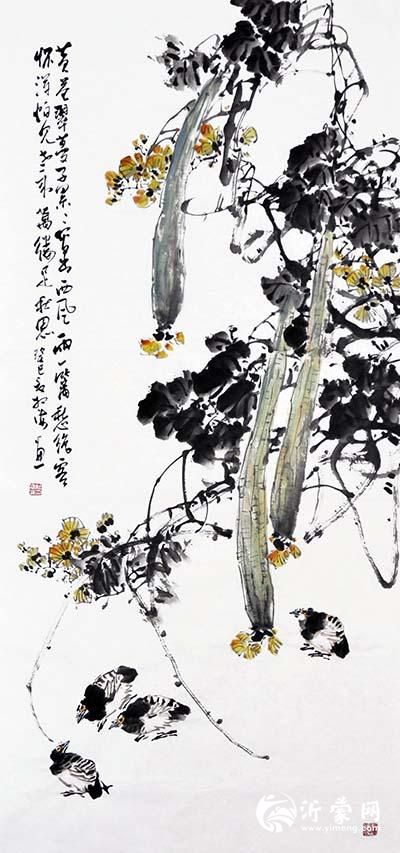 黄花翠蔓子累〻写出西风雨一篱愁绝客
怀浑怕见老来萬缕足秋思癸巳
沂蒙网
www.yimeng.com